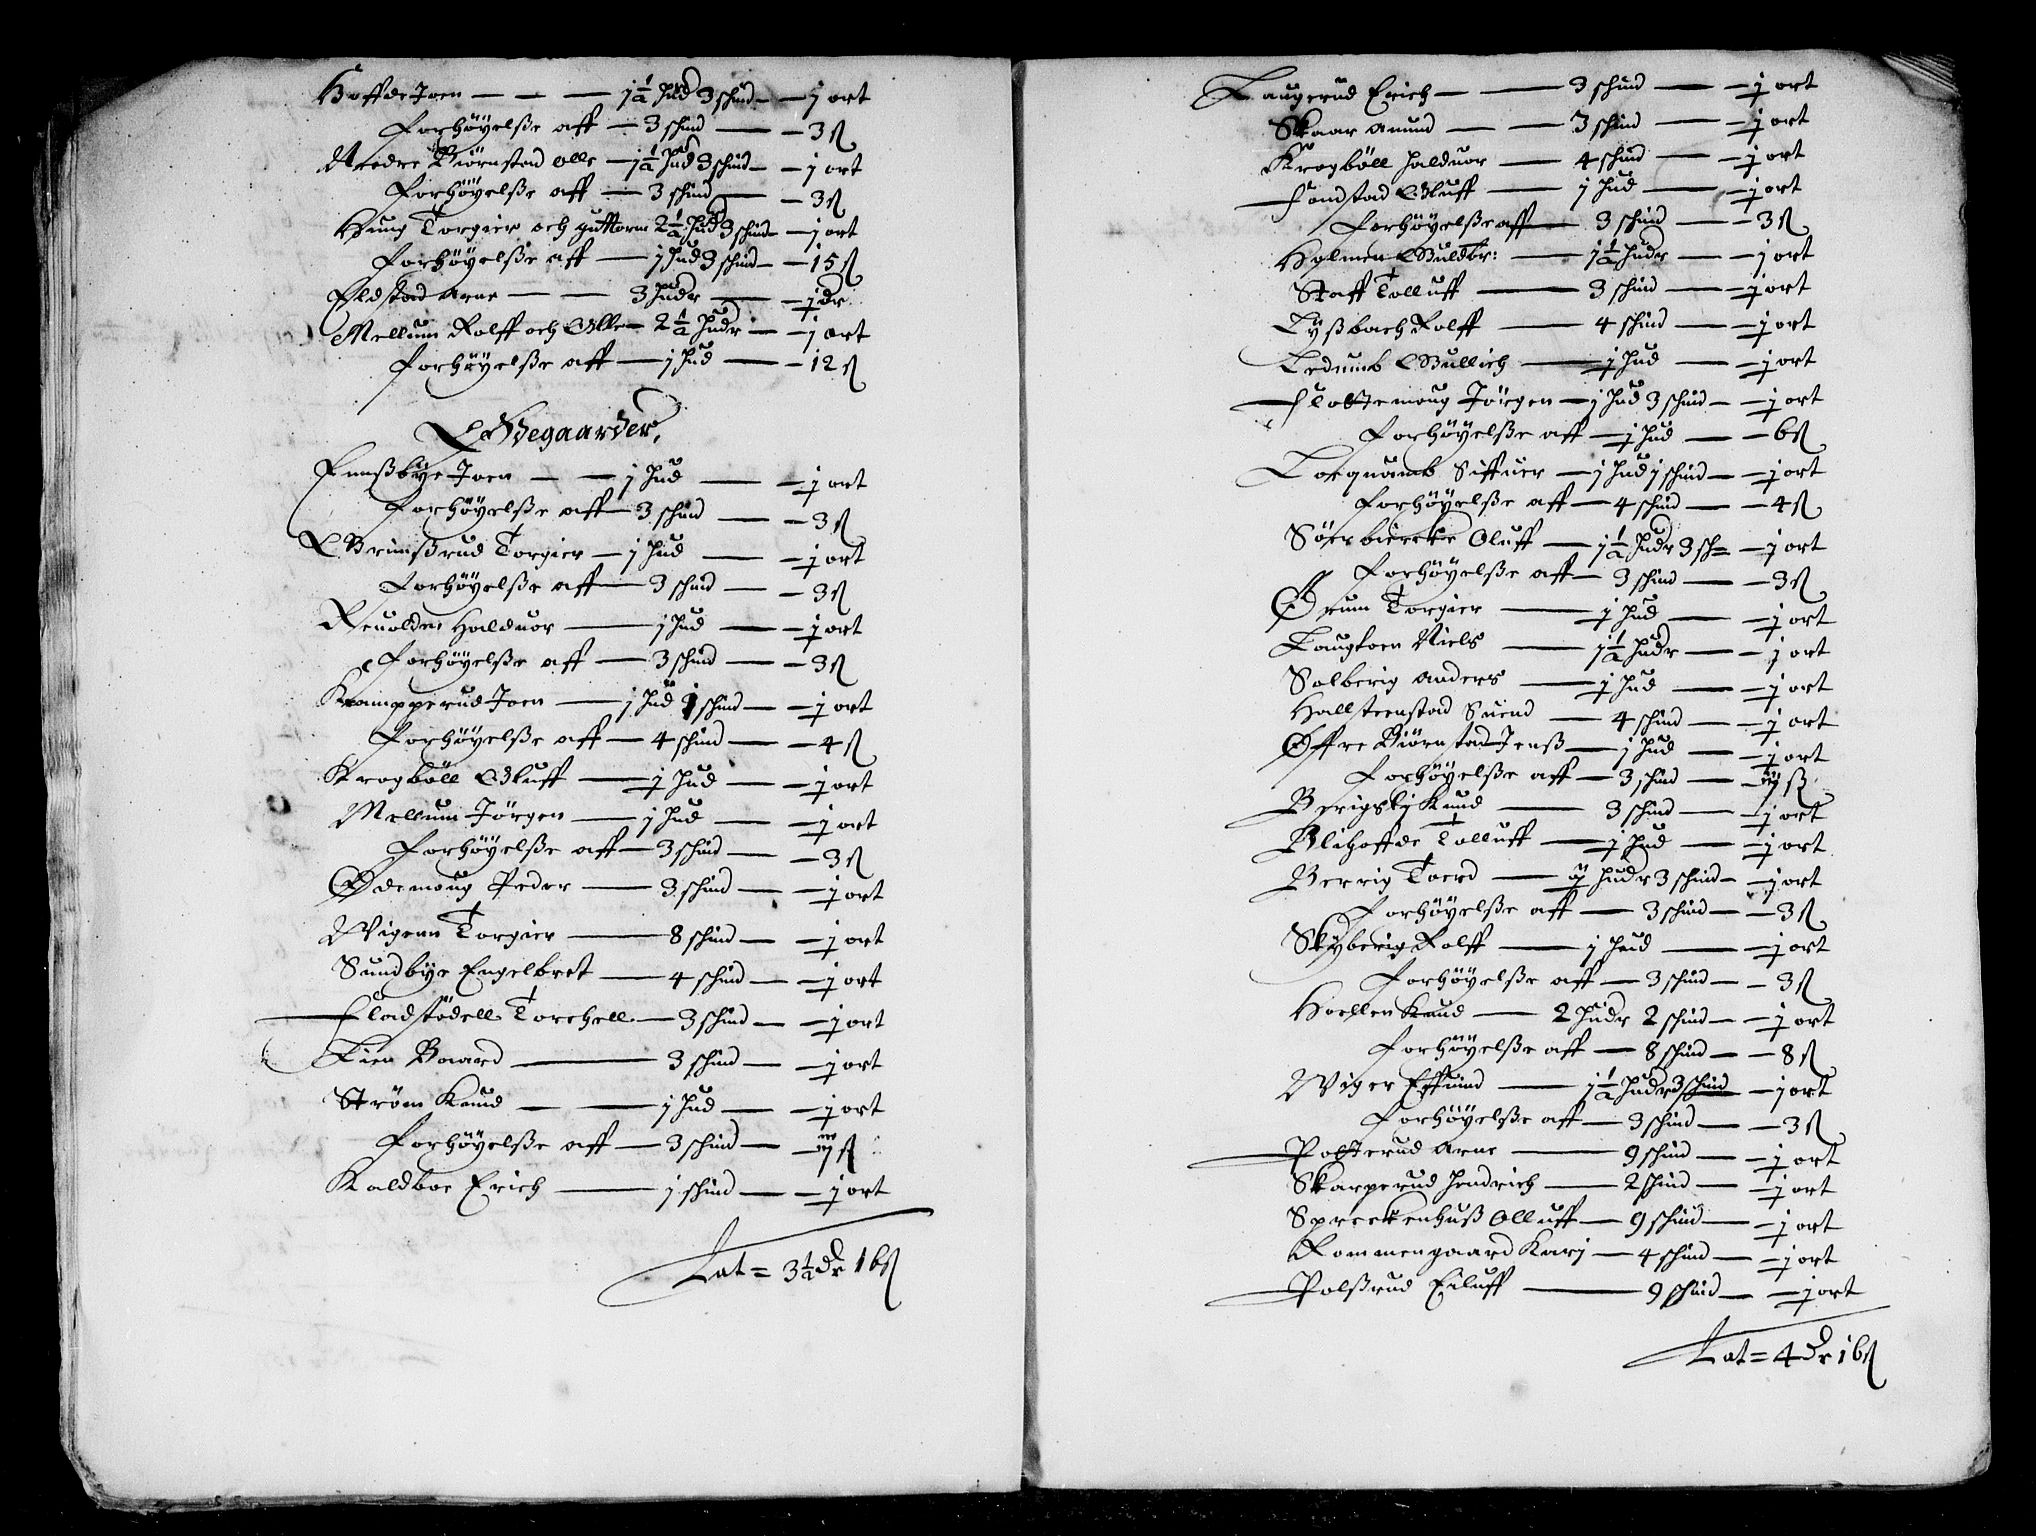 Hoffde Joen — — — 1½ Hud 3 schind — — j ort
forhöyelße aff — 3 schind — — 3 ß
Nedre Biörnstad Olle — 1½ Hud 3 schind — — j ort
forhöyelße aff — 3 schind — — 3 ß
Houg Torgier och Guttorm 2½ Hud 3 schind — j ort
forhöyelße aff — j Hud 3 schind — — 15 ß
Eldstad Arne — — 3 Hudr — — j dr
Mellum Rolff och Olle — 2½ Hudr — — j ort
forhöyelße aff — j Hud — — 12 ß
Ødegaarder,
Ennßbye Joen — — j Hud — — j ort
forhöyelße aff — 3 schind — — 3 ß
Grimßrud Torgier — j Hud — — j ort
forhöyelße aff — 3 schind — — 3 ß
Reuolden Halduor — j Hud — — j ort
forhöyelße aff — 3 schind — — 3 ß
Krampperud Joen — j Hud j schind — — j ort
forhöyelße aff — 4 schind — — 4 ß
Krogböll Oluff — j Hud — — j ort
Mellum Jörgen — j Hud — — j ort
forhöyelße aff — 3 schind — — 3 ß
Ødemoug Peder — 3 schind — — j ort
Wigenn Torgier — 8 schind — — j ort
Sundbye Engelbret — 4 schind — — j ort
Fladstödell Torchell — 3 schind — — j ort
Lien Baard — 3 schind — — j ort
Ström Knud — — j Hud — — j ort
forhöyelße aff — 3 schind — iij ß
Kaldboe Erich — j schind — — j ort
Lat = 3½ dr 16 ß
Laugerud Erich — — 3 schind — — j ort
Skaar Amund — — 3 schind — — j ort
Krogböll Halduor — 4 schind — — j ort
Fondstad Oluff — j Hud — — j ort
forhöyelße aff — 3 schind — — 3 ß
Holmen Guldbr: — 1½ Hudr — — j ort
Staff Tolluff — 3 schind — — j ort
Lÿßbach Rolff — 4 schind — — j ort
Ledumb Gullich — j Hud — — j ort
Flottemoug Jörgen — j Hud 3 schind — — j ort
forhöyelße aff — j Hud — — 6 ß
Torquamb Siffuer — j Hud j schind — — j ort
forhöyelße aff — 4 schind — — 4 ß
Sörbiercke Oluff — 1½ Hudr 3 sch= — j ort
forhöyelße aff — 3 schind — — 3 ß
Ørum Torgier — j Hud — — j ort
Niels — 1½ Hudr — — j ort
Solberig Anders — j Hud — — j ort
Hallsteenstad Suend — 4 schind — — j ort
Øffre Biörnstad Jenß — j Hud — — j ort
forhöyelße aff — 3 schind — iij ß
Berigsbÿ Knud — 3 schind — — j ort
Blihoffde Tolluff — j Hud — — j ort
Berrig Toerd — ij Hudr 3 schind — — j ort
forhöyelße aff — 3 schind — — 3 ß
Skÿberig Rolff — j Hud — — j ort
forhöyelße aff — 3 schind — — 3 ß
Hoellen Knud — 2 Hudr 2 schind — — j ort
forhöyelße aff — 8 schind — — 8 ß
Wiger Effuind — 1½ Hudr 3 schind — j ort
forhöyelße aff — 3 schind — — 3 ß
Potterud Arne — 9 schind — — j ort
Skarperud Hendrich — 2 schind — — j ort
Spreckenhuß Olluff — 9 schind — — j ort
Rommengaard Karj — 4 schind — — j ort
Polßrud Eiluff — 9 schind — — j ort
Lat = 4 dr 16 ß